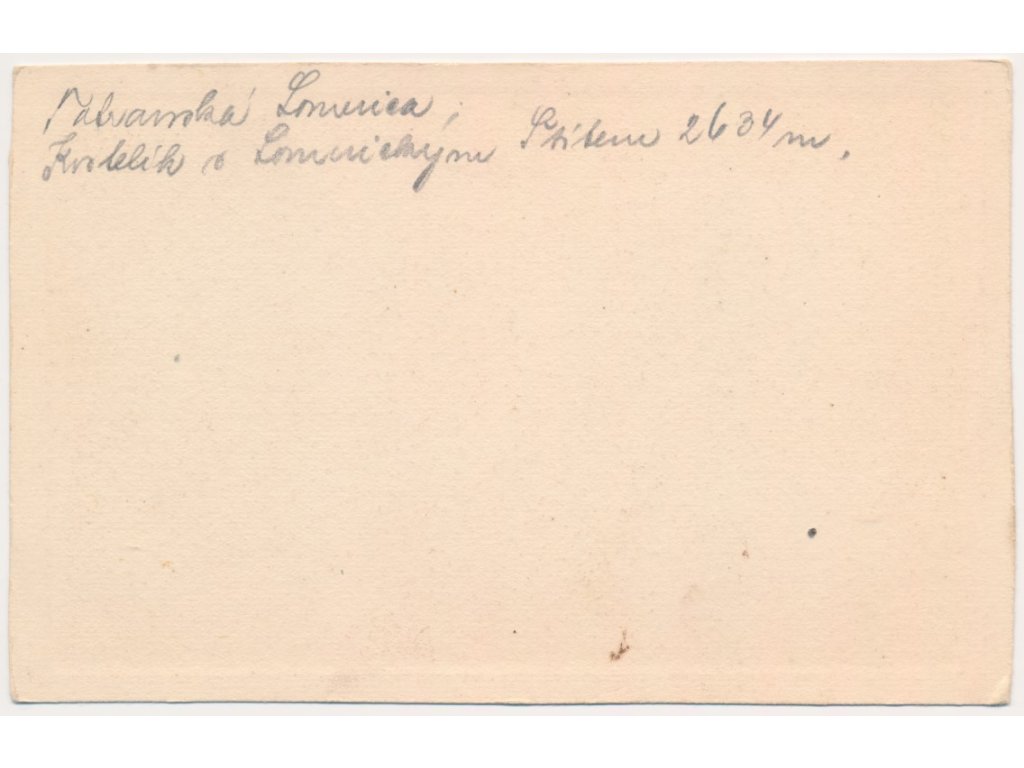 Tatranská Lomnica,
Kotlík s Lomnickým Štítem 2634 m.